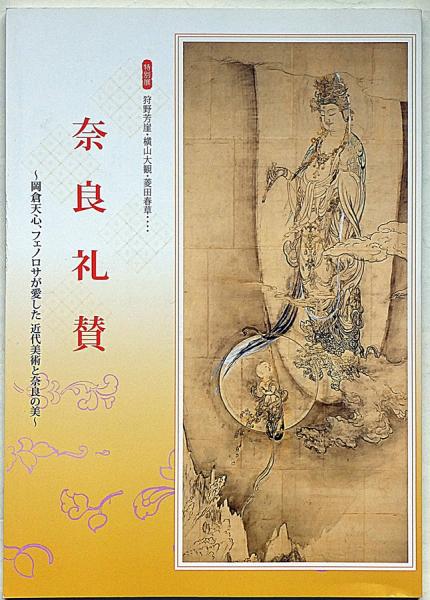 特別展
狩野芳崖・横山大観・菱田春草‥‥
奈良礼賛
～岡倉天心、フェノロサが愛した 近代美術と奈良の美～